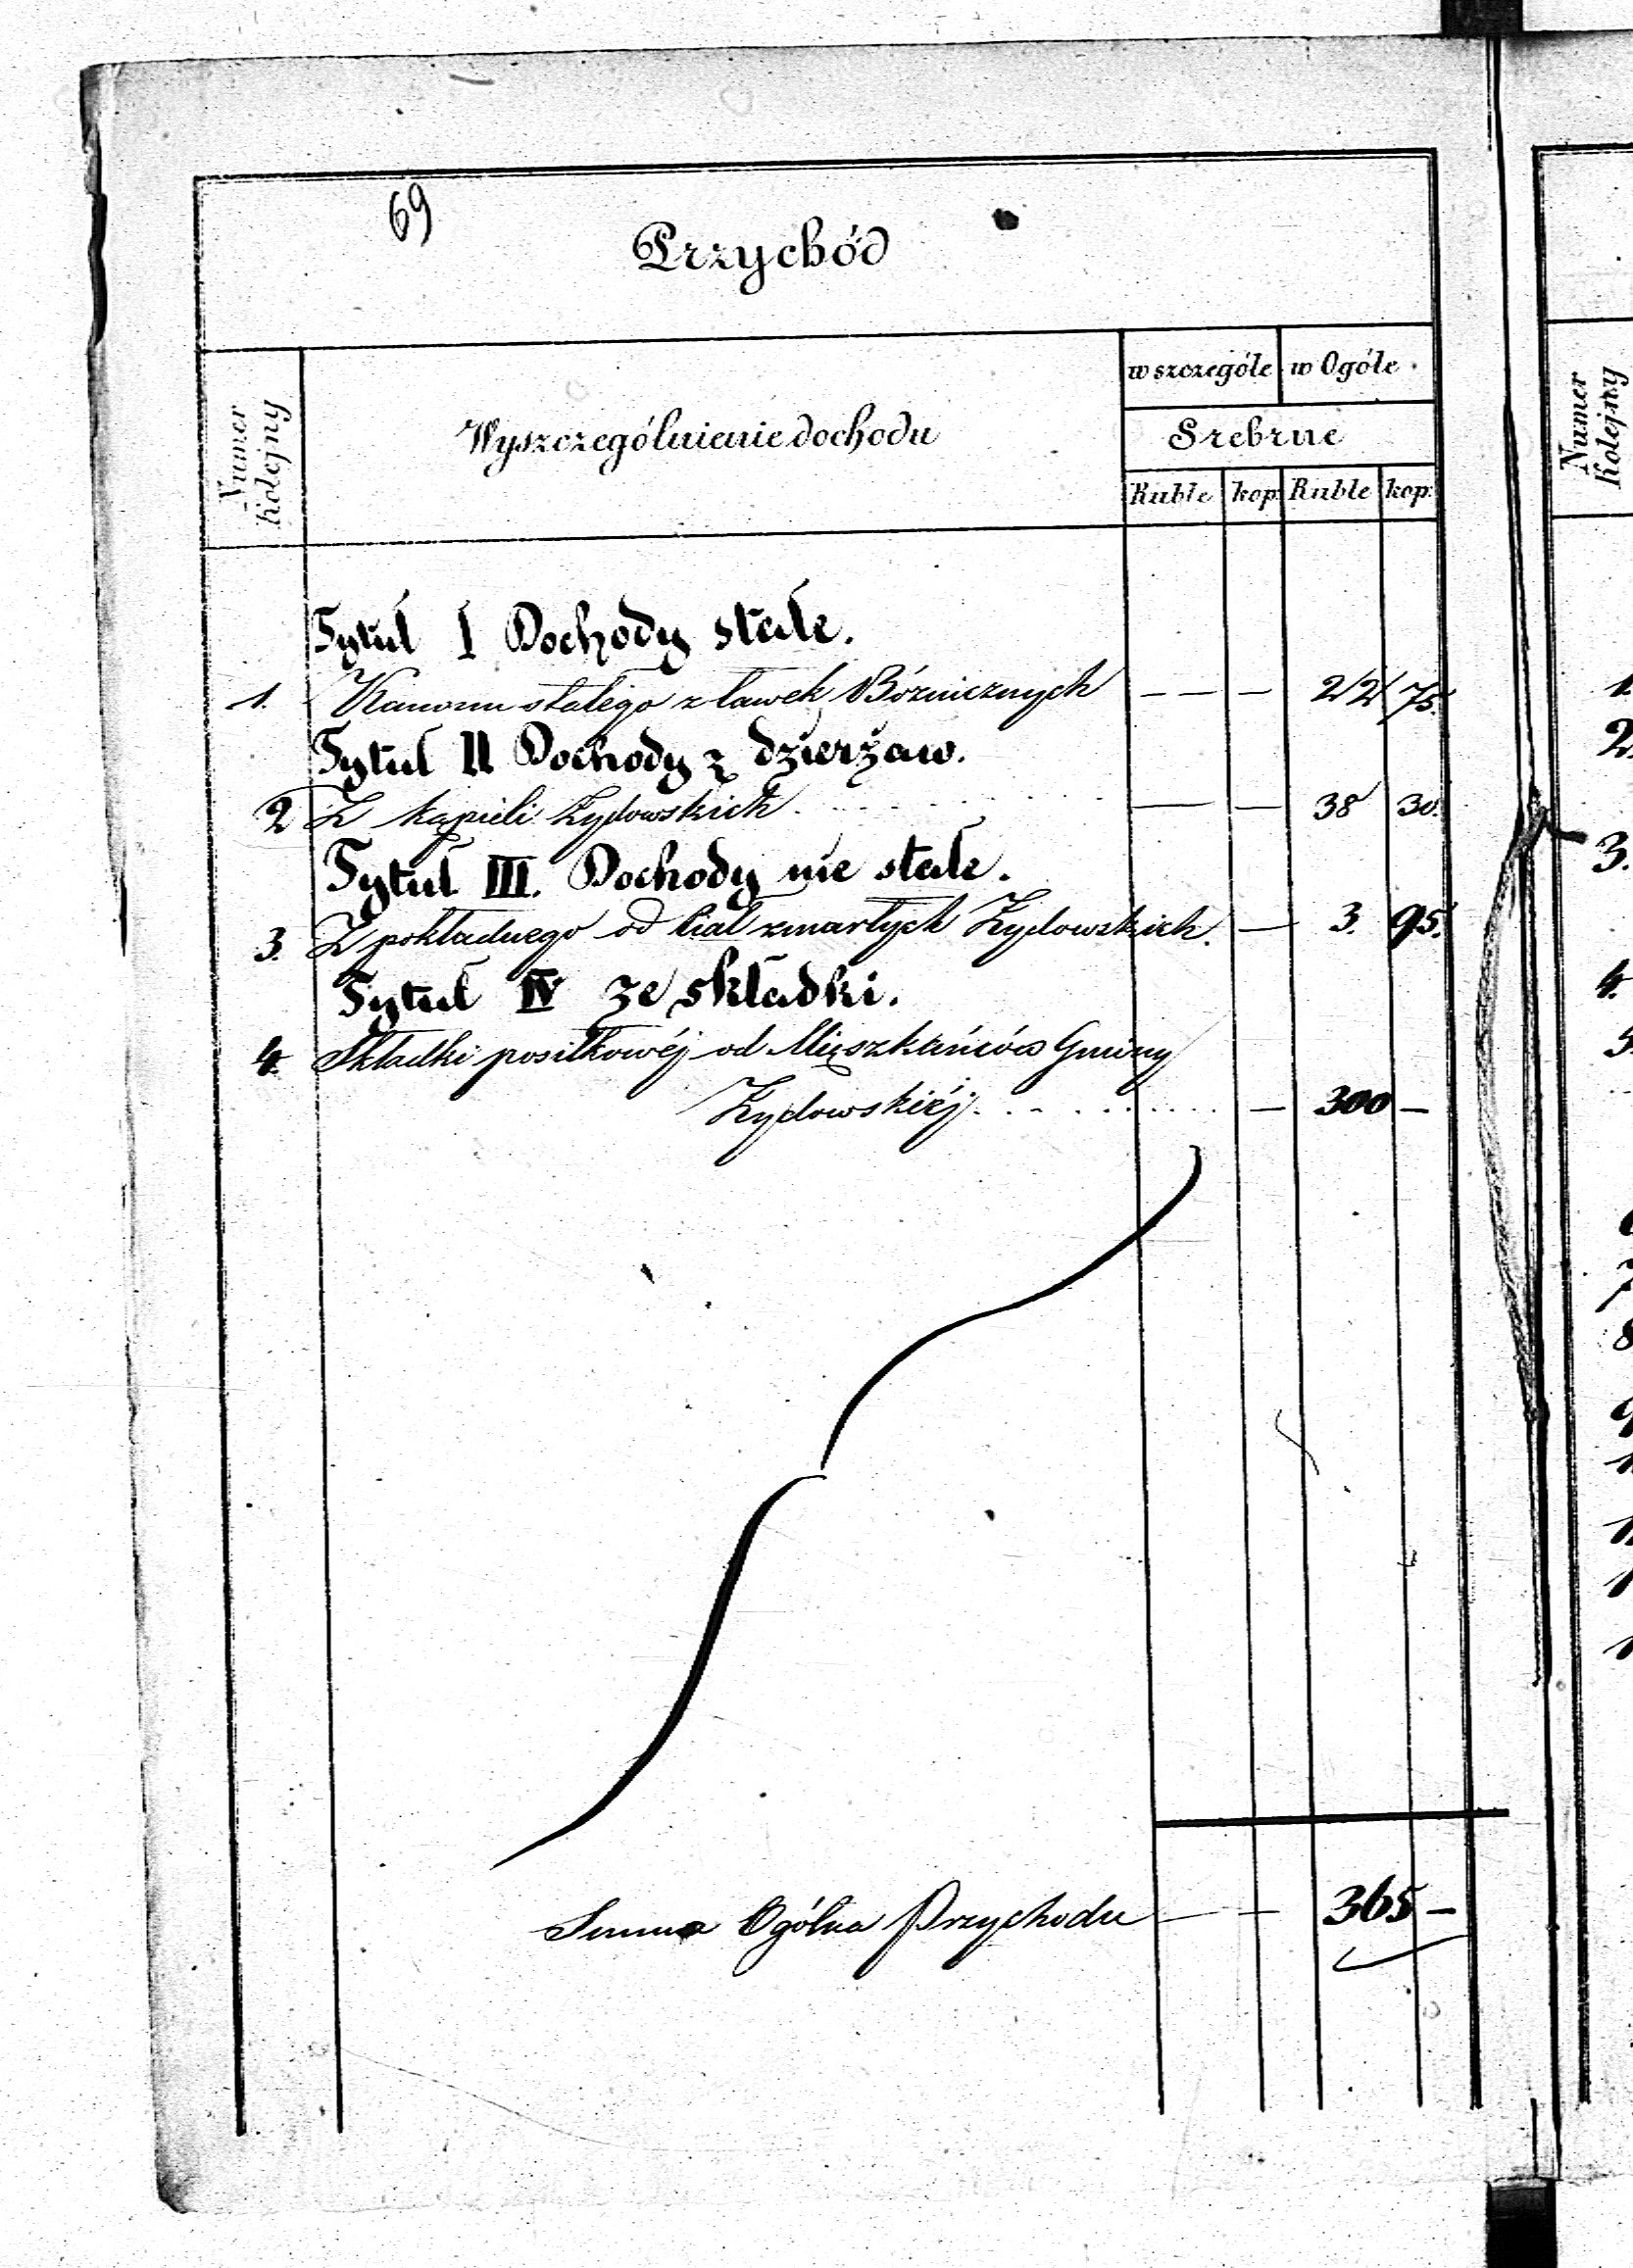 69
Przychód
Numer kolejny
Wyszczególnienie dochodu
w szczególe w Ogóle
Srebrne
Ruble kop: Ruble kop:
Tytuł I Dochody stałe.
1. Kanonu stałego z ławek Bóżnicznych - - - 22 75.
Tytuł II Dochody z dzierżaw.
2 Z kąpieli Żydowskich . . . . . . — — 38 30.
Tytuł III. Dochody nie stałe.
3. Z pokładnego od ciał zmarłych Żydowskich. — 3. 95.
Tytuł IV ze składki.
4. Składki posiłkowéj od Mieszkańców Gminy
Żydowskiéj. . . . . . . . . — 300 —
Summa Ogólna Przychodu — — 365 —
Numer Kolejny
1.
2.
3.
4.
5.
7
8
9